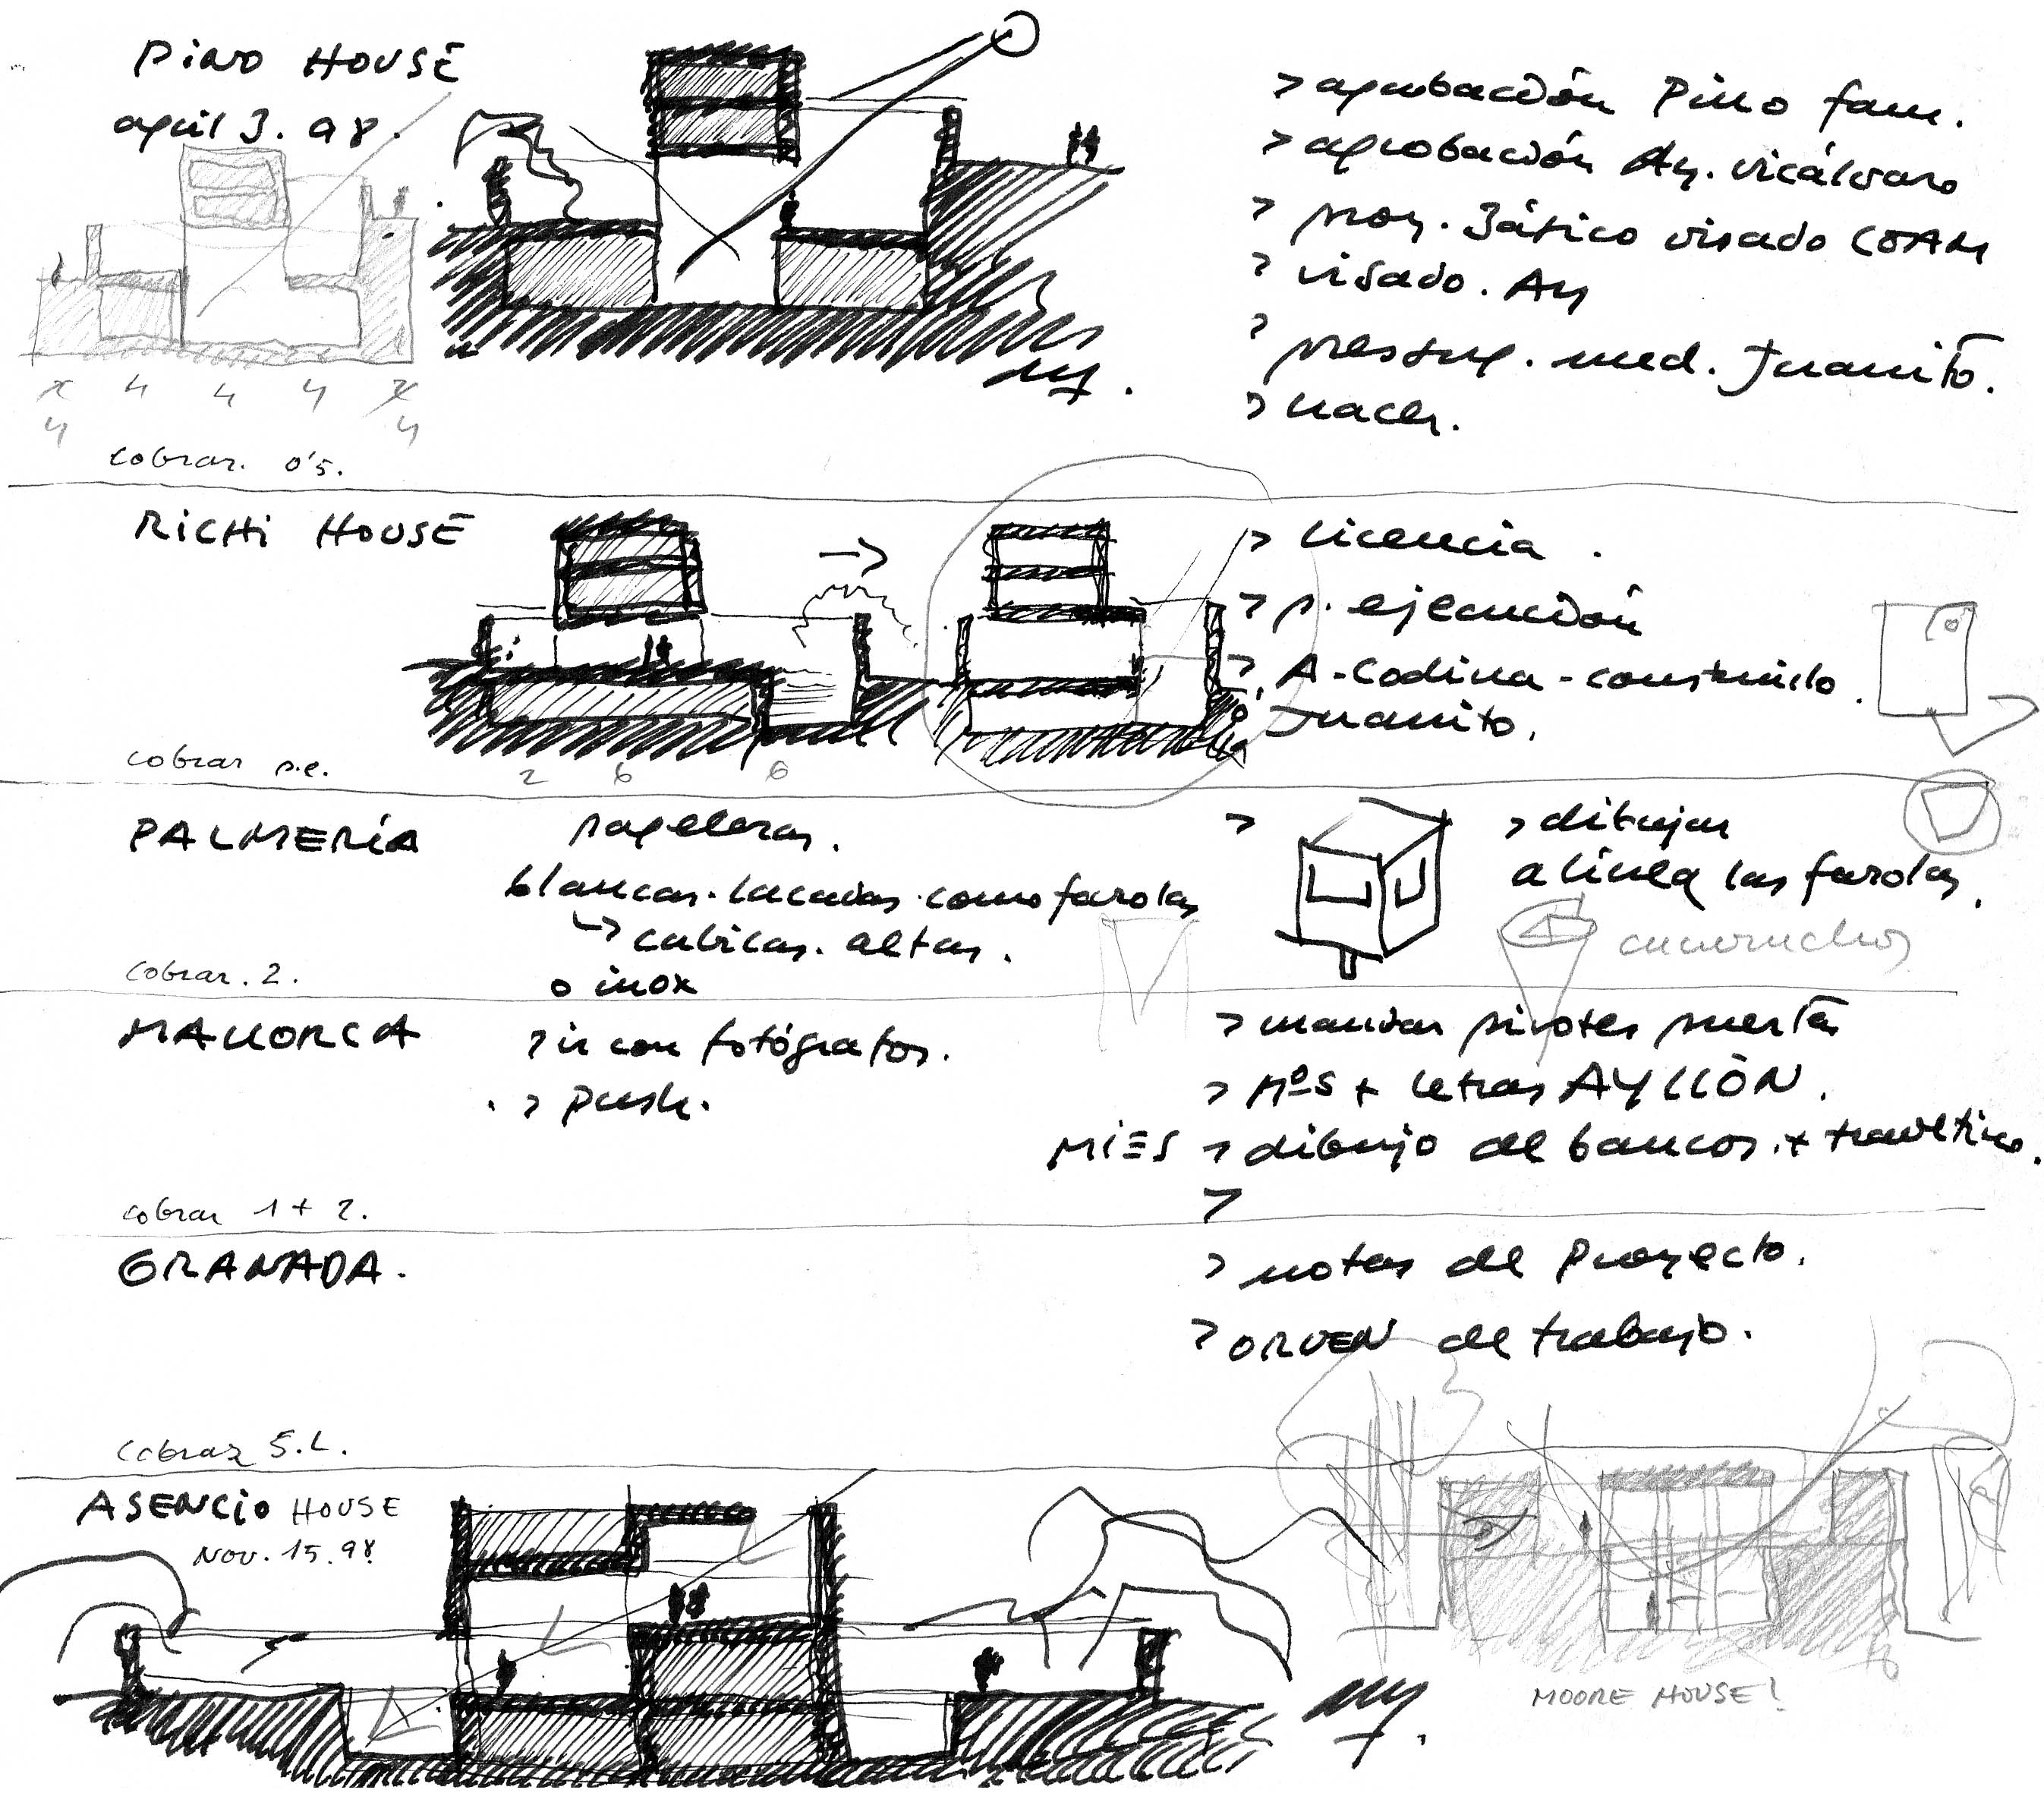 PINO HOUSE
april 3. 98.
> aprobación Pino fam.
> aprobación Ay. Vicálvaro
> proy. Básico visado COAM
> visado. Ay
> presup. med. Juanito.
> hacer.
x 4 4 4 x
4 4
cobrar. 0'5.
RICHI HOUSE
> licencia.
> p. ejecución
> A. Codina - construirlo.
Juanito.
cobrar p.e.
2 6 6
PALMERÍA
papeleras.
blancas. lacadas. como farolas
cúbicas. altas.
o inox
> dibujar
a línea las farolas.
cucuruchos
cobrar. 2.
MALLORCA
> ir con fotógrafos.
. > push.
> mandar pivotes puertas
> Nºs + letras AYLLÓN.
MIES > dibujo de bancos. + travertino.
>
cobrar 1 + 2.
GRANADA.
> notas de Proyecto.
> ORDEN de trabajo.
cobrar S.L.
ASENCIO HOUSE
NOV. 15. 98
MOORE HOUSE!